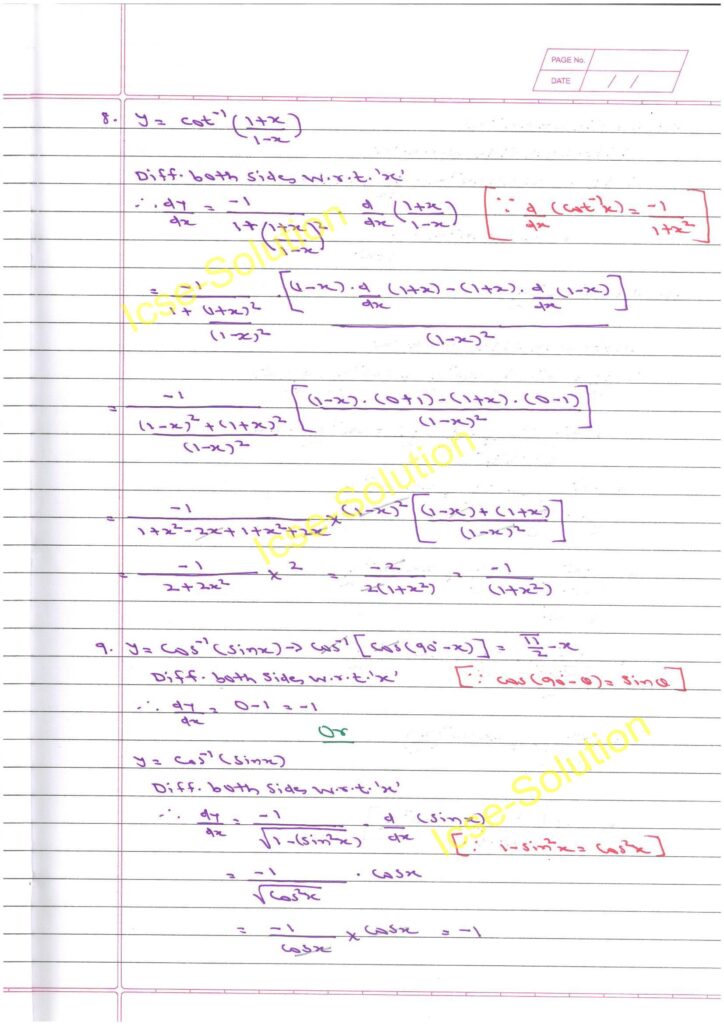 PAGE No.
DATE / /
8. y = cot⁻¹ (1+x / 1-x)
Diff. both sides w.r.t. 'x'
∴ dy/dx = -1 / 1+(1+x / 1-x)² · d/dx (1+x / 1-x) [∵ d/dx (cot⁻¹x) = -1 / 1+x²]
= -1 / 1 + (1+x)² / (1-x)² · [(1-x) · d/dx (1+x) - (1+x) · d/dx (1-x)] / (1-x)²
= -1 / (1-x)² + (1+x)² / (1-x)² [(1-x) · (0+1) - (1+x) · (0-1) / (1-x)²]
= -1 / 1+x²-2x+1+x²+2x × (1-x)² [(1-x) + (1+x) / (1-x)²]
= -1 / 2+2x² × 2 = -2 / 2(1+x²) = -1 / (1+x²)
9. y = cos⁻¹ (sinx) → cos⁻¹ [cos(90°-x)] = π/2 - x
Diff. both sides w.r.t. 'x' [∵ cos(90°-θ) = sinθ]
∴ dy/dx = 0-1 = -1
Or
y = cos⁻¹ (sinx)
Diff. both sides w.r.t. 'x'
∴ dy/dx = -1 / √1-(sin²x) · d/dx (sinx)
[∵ 1-sin²x = cos²x]
= -1 / √cos²x · cosx
= -1 / cosx × cosx = -1
Icse-Solution
Icse-Solution
Icse-Solution